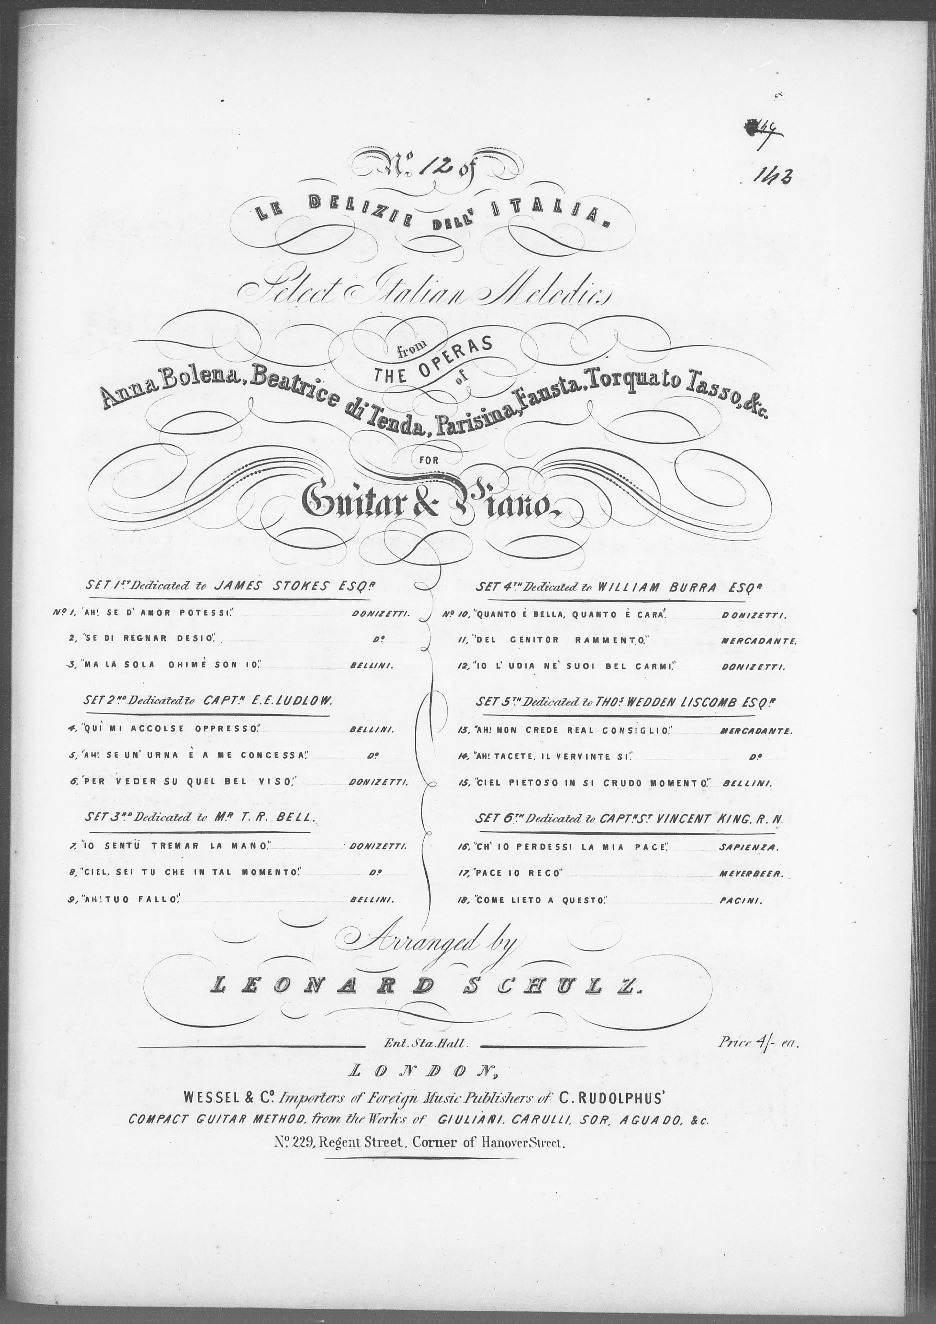 149
143
No. 12 of
LE DELIZIE DELL' ITALIA.
Select Italian Melodies
from
THE OPERAS
of
Anna Bolena, Beatrice di Tenda, Parisina, Fausta, Torquato Tasso, &c.
FOR
Guitar & Piano.
SET 1ST Dedicated to JAMES STOKES ESQR
No 1, "AH! SE D' AMOR POTESSI." DONIZETTI.
2, "SE DI REGNAR DESIO." Do
3, "MA LA SOLA OHIMÈ SON IO." BELLINI.
SET 2ND Dedicated to CAPTN E.E. LUDLOW.
4, "QUÌ MI ACCOLSE OPPRESSO." BELLINI.
5, "AH! SE UN' URNA È A ME CONCESSA." Do
6, "PER VEDER SU QUEL BEL VISO." DONIZETTI.
SET 3RD Dedicated to MR T. R. BELL.
7, "IO SENTÜ TREMAR LA MANO." DONIZETTI.
8, "CIEL, SEI TU CHE IN TAL MOMENTO." Do
9, "AH! TUO FALLO." BELLINI.
SET 4TH Dedicated to WILLIAM BURRA ESQR
No 10, "QUANTO È BELLA, QUANTO È CARA". DONIZETTI.
11, "DEL GENITOR RAMMENTO." MERCADANTE.
12, "IO L' UDIA NE' SUOI BEL CARMI." DONIZETTI.
SET 5TH Dedicated to THOS WEDDEN LISCOMB ESQR
13, "AH! NON CREDE REAL CONSIGLIO." MERCADANTE.
14, "AH! TACETE, IL VERVINTE SI." Do
15, "CIEL PIETOSO IN SI CRUDO MOMENTO." BELLINI.
SET 6TH Dedicated to CAPTN ST VINCENT KING, R. N.
16, "CH' IO PERDESSI LA MIA PACE". SAPIENZA.
17, "PACE IO RECO" MEYERBEER.
18, "COME LIETO A QUESTO." PACINI.
Arranged by
LEONARD SCHULZ.
Ent. Sta. Hall. Price 4/- ea.
LONDON,
WESSEL & Co. Importers of Foreign Music Publishers of C. RUDOLPHUS'
COMPACT GUITAR METHOD, from the Works of GIULIANI, CARULLI, SOR, AGUADO, &c.
No. 229, Regent Street, Corner of Hanover Street.